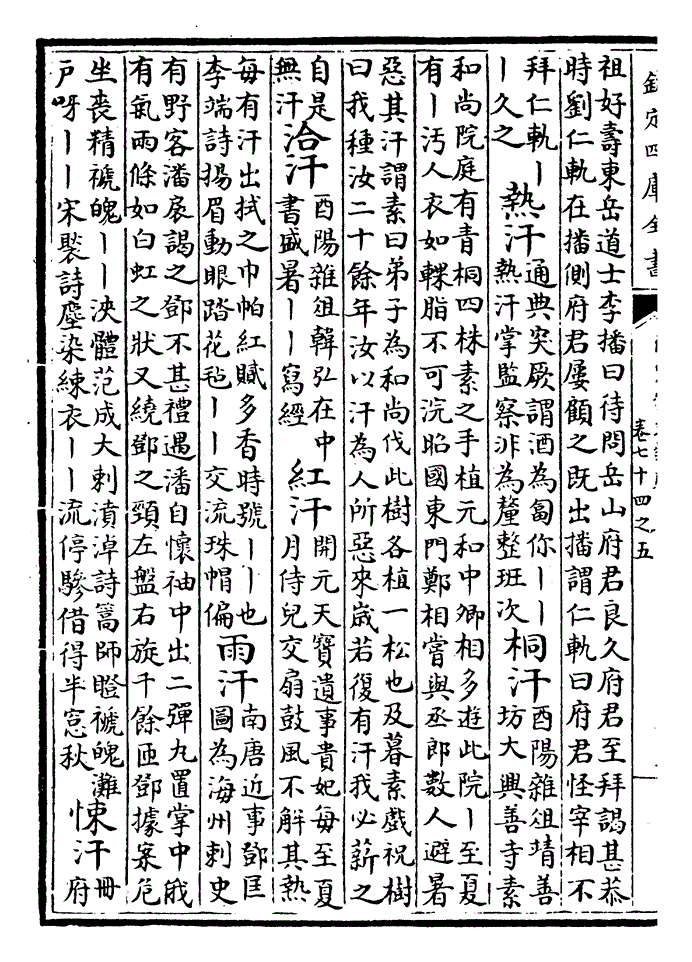 欽定四庫全書
卷七十四之五
祖好壽東岳道士李播曰待問岳山府君良久府君至拜謁甚恭
時劉仁軌在播側府君屢顧之既出播謂仁軌曰府君怪宰相不
拜仁軌丨
丨久之
熱汗
通典突厥謂酒為匐你丨丨
熱汗掌監察非為釐整班次
桐汗
酉陽雜俎靖善
坊大興善寺素
和尚院庭有青桐四株素之手植元和中卿相多遊此院丨至夏
有丨汚人衣如輠脂不可浣昭國東門鄭相嘗與丞郎數人避暑
惡其汗謂素曰弟子為和尚伐此樹各植一松也及暮素戲祝樹
曰我種汝二十餘年汝以汗為人所惡來歲若復有汗我必薪之
自是
無汗
洽汗
酉陽雜俎韓弘在中
書盛暑丨丨寫經
紅汗
開元天寳遺事貴妃每至夏
月侍兒交扇鼓風不解其熱
每有汗出拭之巾帕紅賦多香時號丨丨也
李端詩揚眉動眼踏花毡丨丨交流珠帽偏
雨汗
南唐近事鄧匡
圖為海州刺史
有野客潘扆謁之鄧不甚禮遇潘自懷袖中出二彈丸置掌中俄
有氣兩條如白虹之狀又繞鄧之頸左盤右旋千餘匝鄧據案危
坐喪精褫魄丨丨浹體范成大刺濆淖詩篙師瞪褫魄灘
戸呀丨丨宋褧詩塵染練衣丨丨流停驂借得半窓秋
悚汗
冊
府